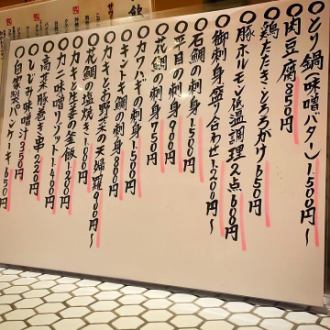 ○とり鍋(味噌バター)1500円〜
○肉豆腐 850円
○鶏たたき・とろろかけ 650円
○豚ホルモン低温調理2点 600円
○御刺身盛り合わせ 1200円〜
○石鯛の刺身 1500円
○平目の刺身 900円
○花鯛の刺身 750円
○カワハギの刺身 1500円
○キントキ鯛の刺身 800円
○花鯛の塩焼き 1000円
○カキと野菜の天婦羅 900円〜
○カキと生姜の釜飯 1200円
○カニ味噌リゾット 1400円
○高菜豚巻き串 220円
○しじみ味噌汁 350円
○自家製パンケーキ 650円